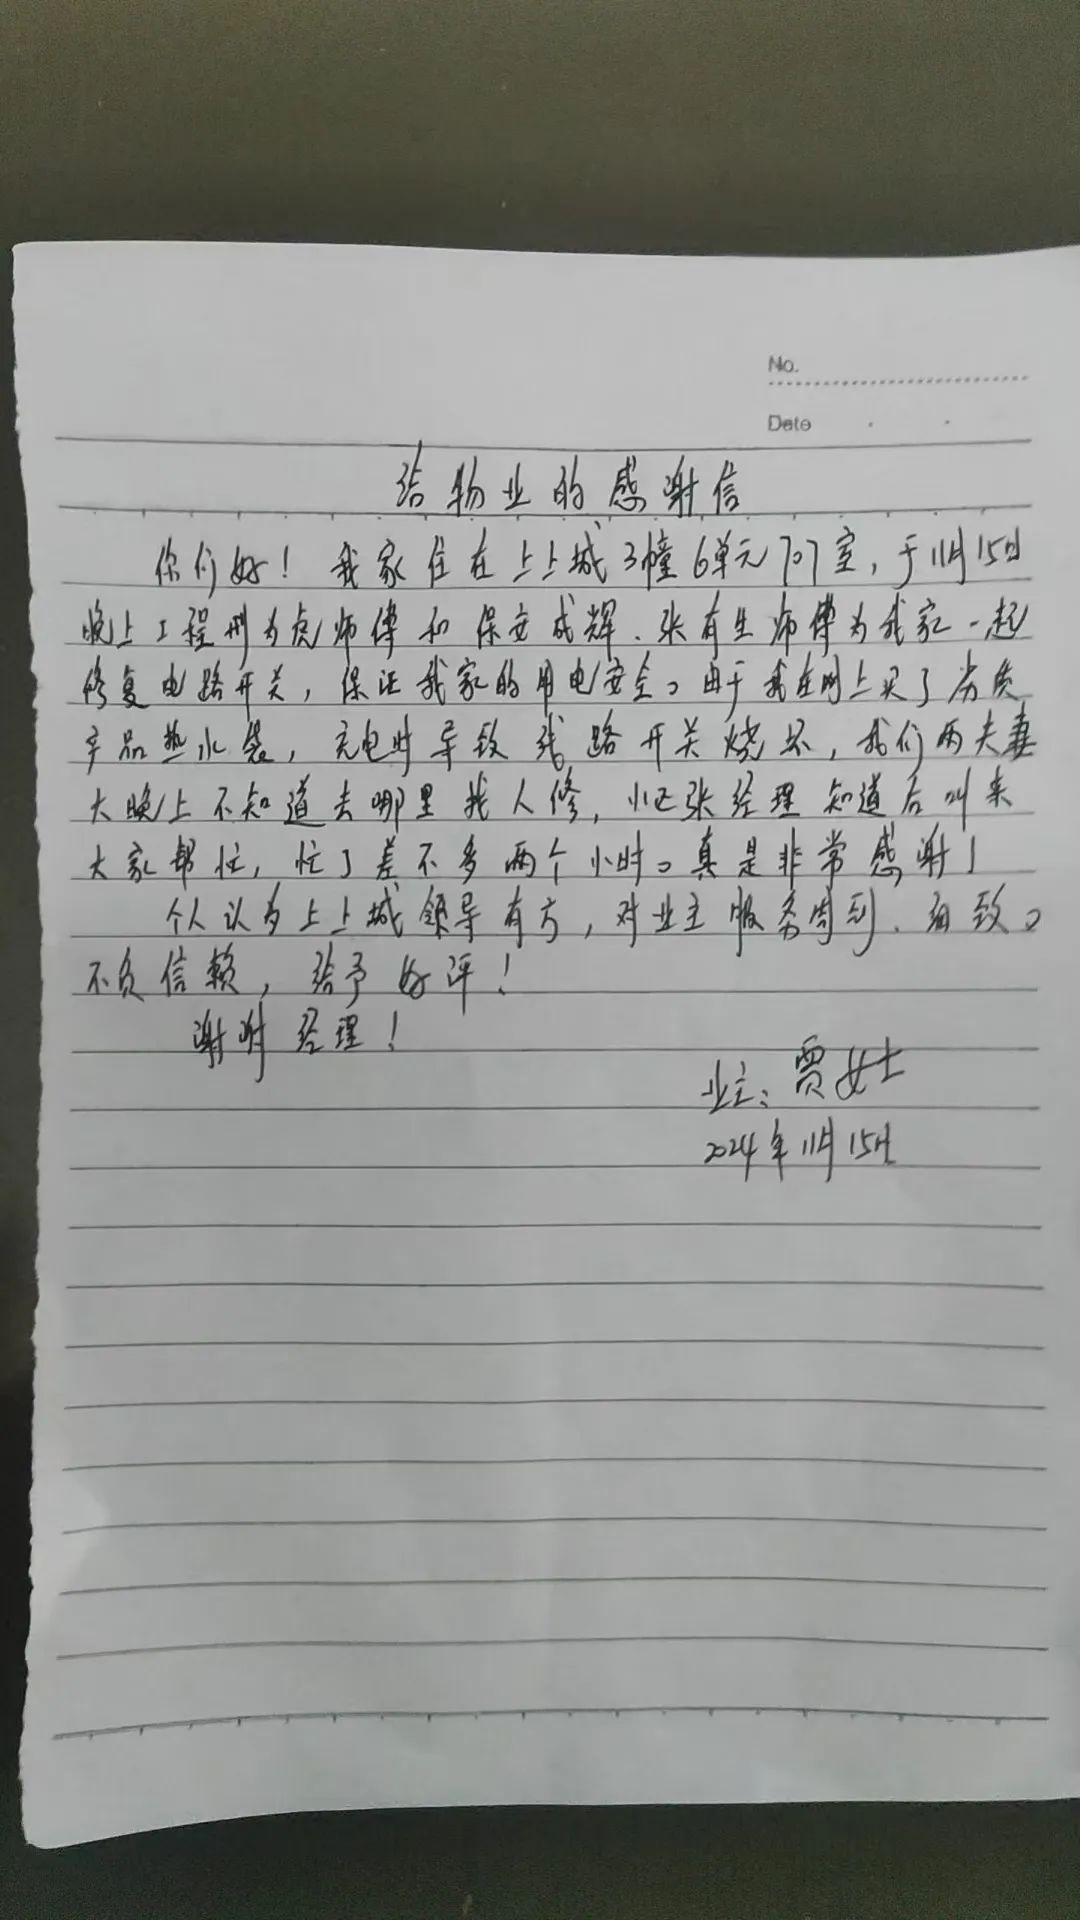 No.
Date
给物业的感谢信
你们好！我家住在上上城3幢6单元707室，于11月15日
晚上工程部为虎师傅和保安成辉、张有生师傅为我家一起
修复电路开关，保证我家的用电安全。由于我在网上买了劣质
产品热水袋，充电时导致线路开关烧坏，我们两夫妻
大晚上不知道去哪里找人修，张经理知道后叫来
大家帮忙，忙了差不多两个小时。真是非常感谢！
个人认为上上城领导有方，对业主服务周到、细致。
不负信赖，给予好评！
谢谢经理！
业主：贾女士
2024年11月15日